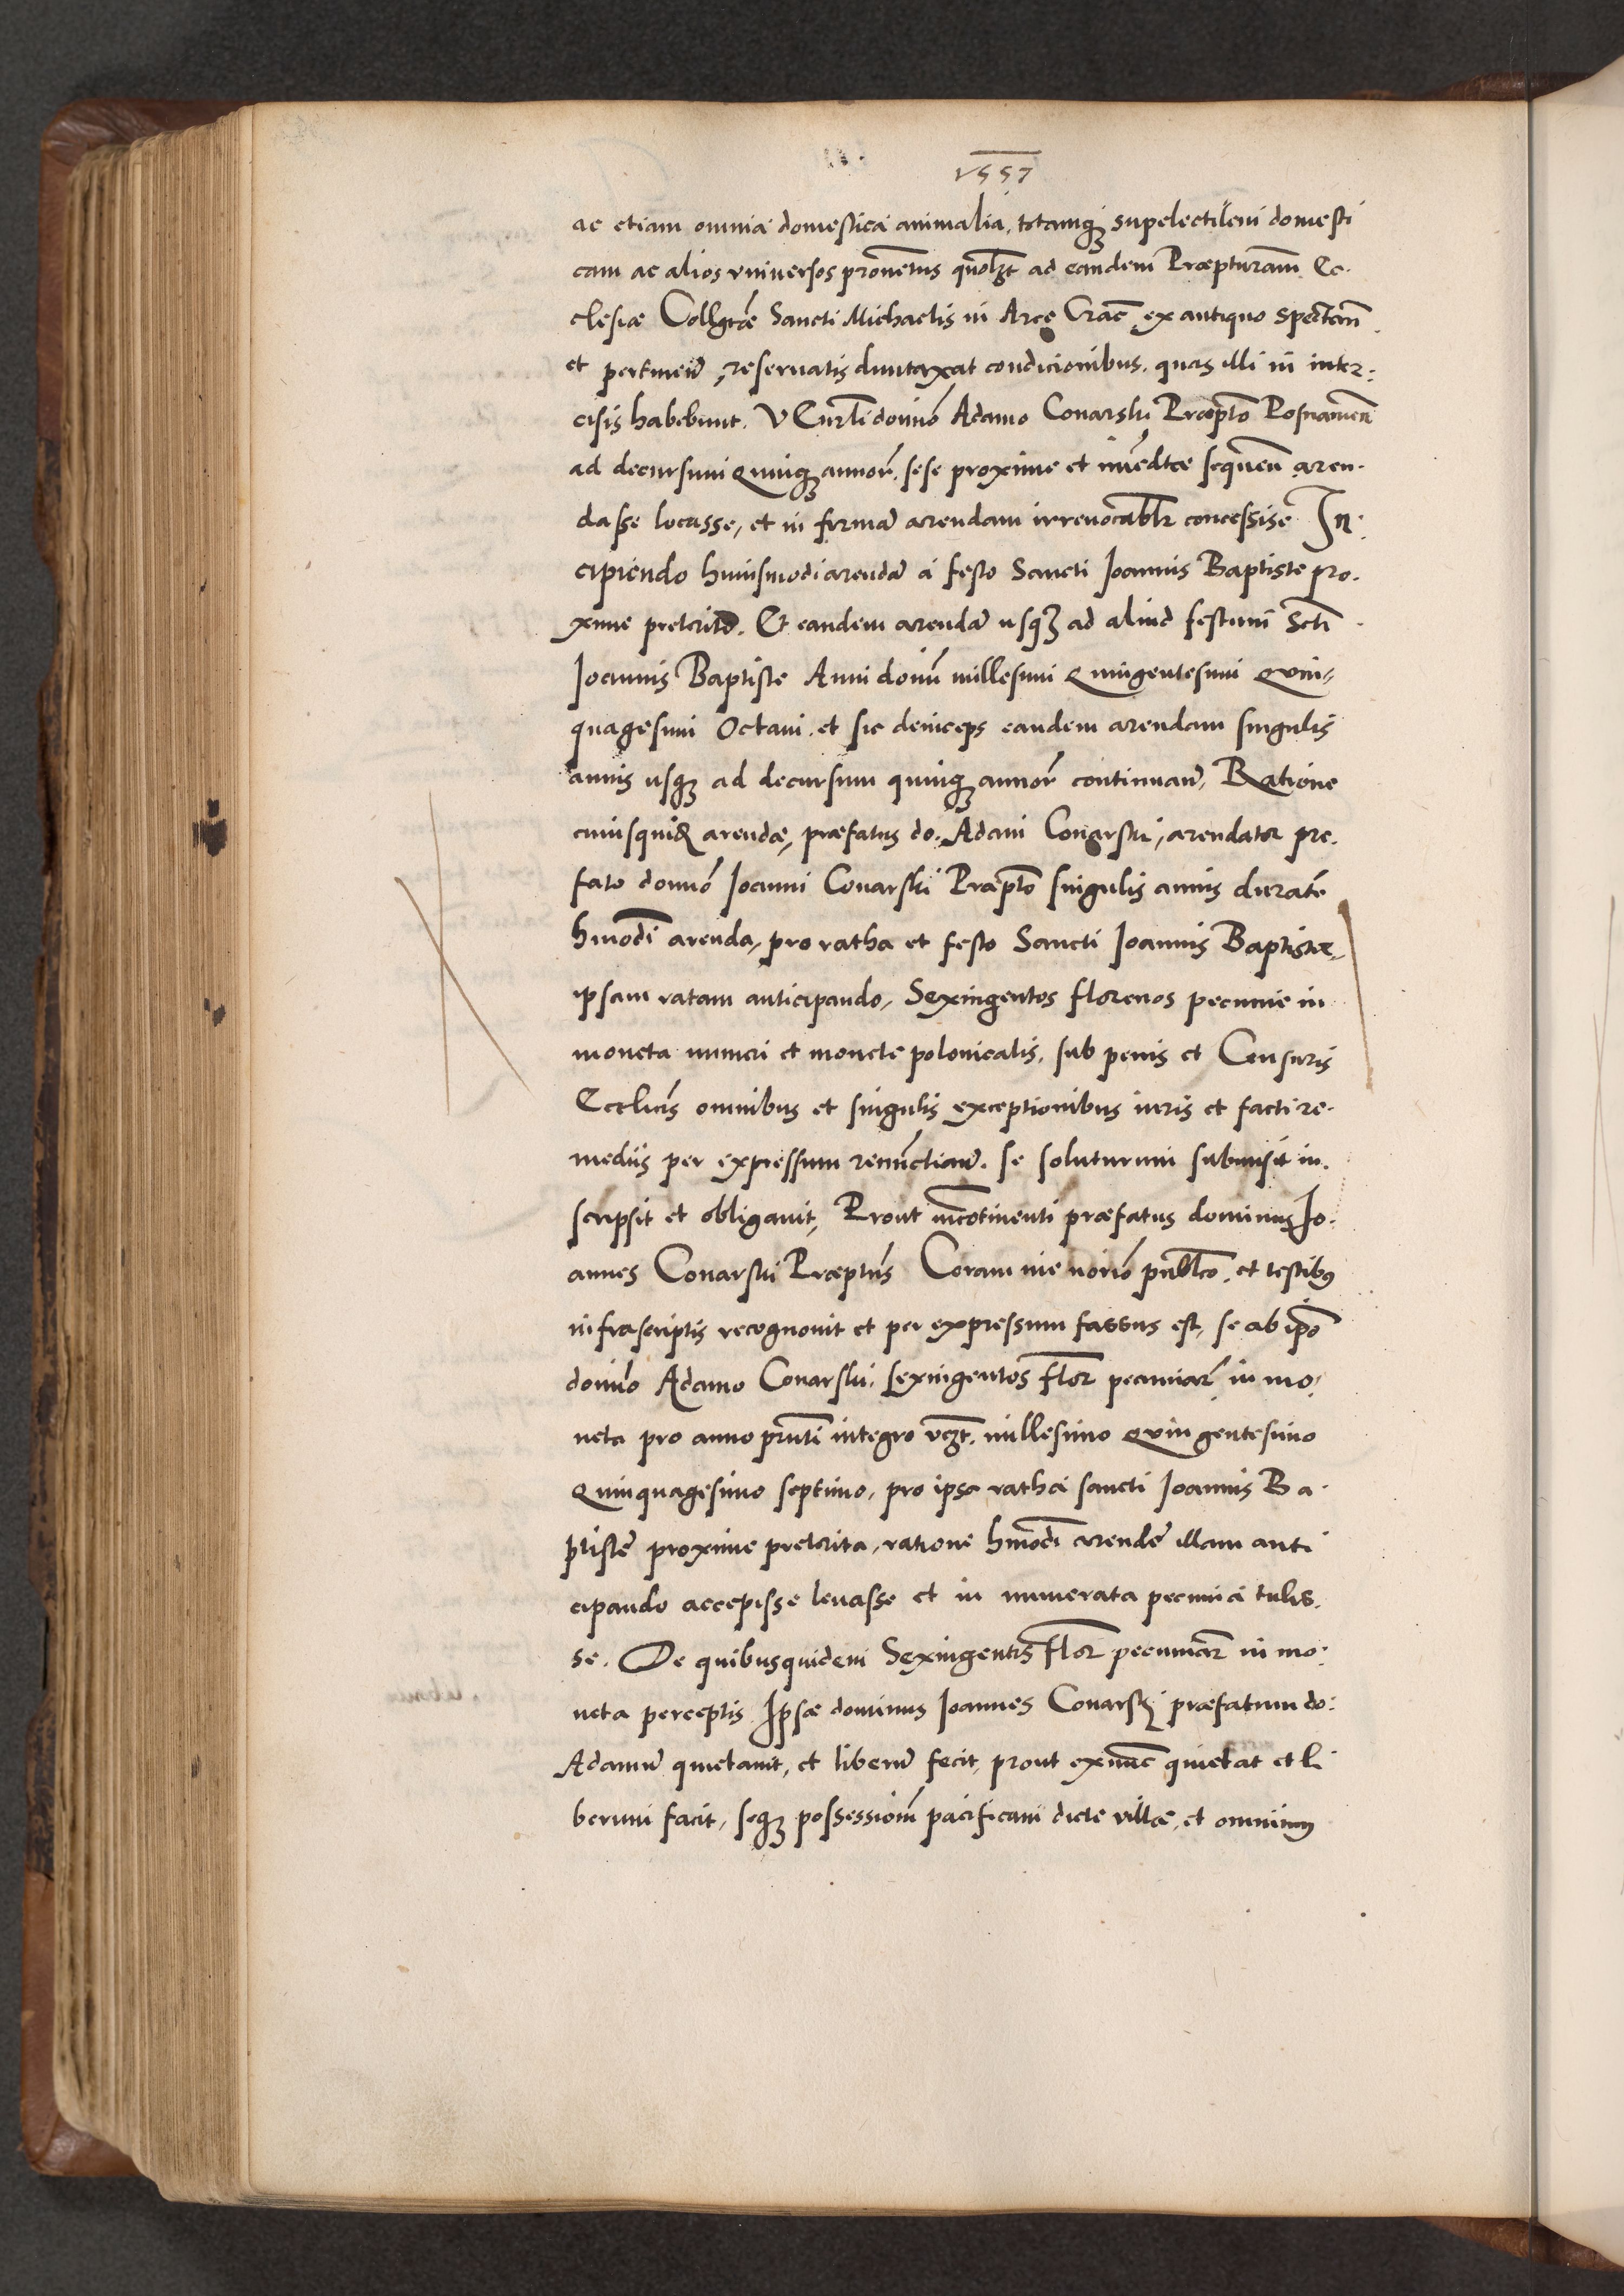 1557
ac etiam omnia domestica animalia, totamq3 supelectilem domesti
cam ac alios vniuersos prouentus quol3t ad eandem Præpturam Ec-
clesiæ Collgtæ Sancti Michaelis in Arce Crac ex antiquo spectan
et pertinen, reseruatis duntaxat condicionibus, quas illi in inter-
cisis habebunt. V Curli domino Adamo Conarski Præpto Posnanien
ad decursum Quinq3 annor, sese proxime et imedtæ sequen aren-
dasse locasse, et in firmā arendam irreuocablr concessise In-
cipiendo huiusmodi arendā a festo Sancti Joannis Baptiste pro-
xime preterito. Et eandem arendā usq3 ad aliud festum Scti
Joannis Baptiste Anni domi millesimi Quingentesimi Quin-
quagesimi Octaui, et sic deinceps eandem arendam singulis
annis usq3 ad decursum quinq3 annor continuan, Ratione
cuiusquid arendæ, præfatus do. Adam Conarski, arendator pre-
fato domino Joanni Conarski Præpto singulis annis durate
hmodi arenda, pro ratha et festo Sancti Joannis Baptistæ,
ipsam ratam anticipando, Sexingentos florenos pecunie in
moneta numeri et monete polonicalis, sub penis et Censuris
Ecclicis omnibus et singulis exceptionibus iuris et facti re-
mediis per expressum renunctian. se soluturum submisit in-
scripsit et obligauit, Prout incotinenti præfatus dominus Jo-
annes Conarski Præptus Coram me norio publco, et testib9
infrascriptis recognouit et per expressum fassus est, se ab ipo
domino Adamo Conarski, sexingentos flor pecuniar in mo-
neta pro anno prnti integro vc3t. millesimo Quingentesimo
Quinquagesimo septimo, pro ipsa ratha sancti Joannis Ba-
ptiste proxime preterita, ratione hmodi arende illam anti
cipando accepisse leuasse et in numerata pecunia tulis-
se. De quibusquidem Sexingentis flor pecuniar in mo-
neta perceptis Ipsæ dominus Joannes Conarski præfatum do-
Adamū quietauit, et liberū fecit, prout exnunc quietat et li
berum facit, seq3 possessionem pacificam dicte villæ, et omnium